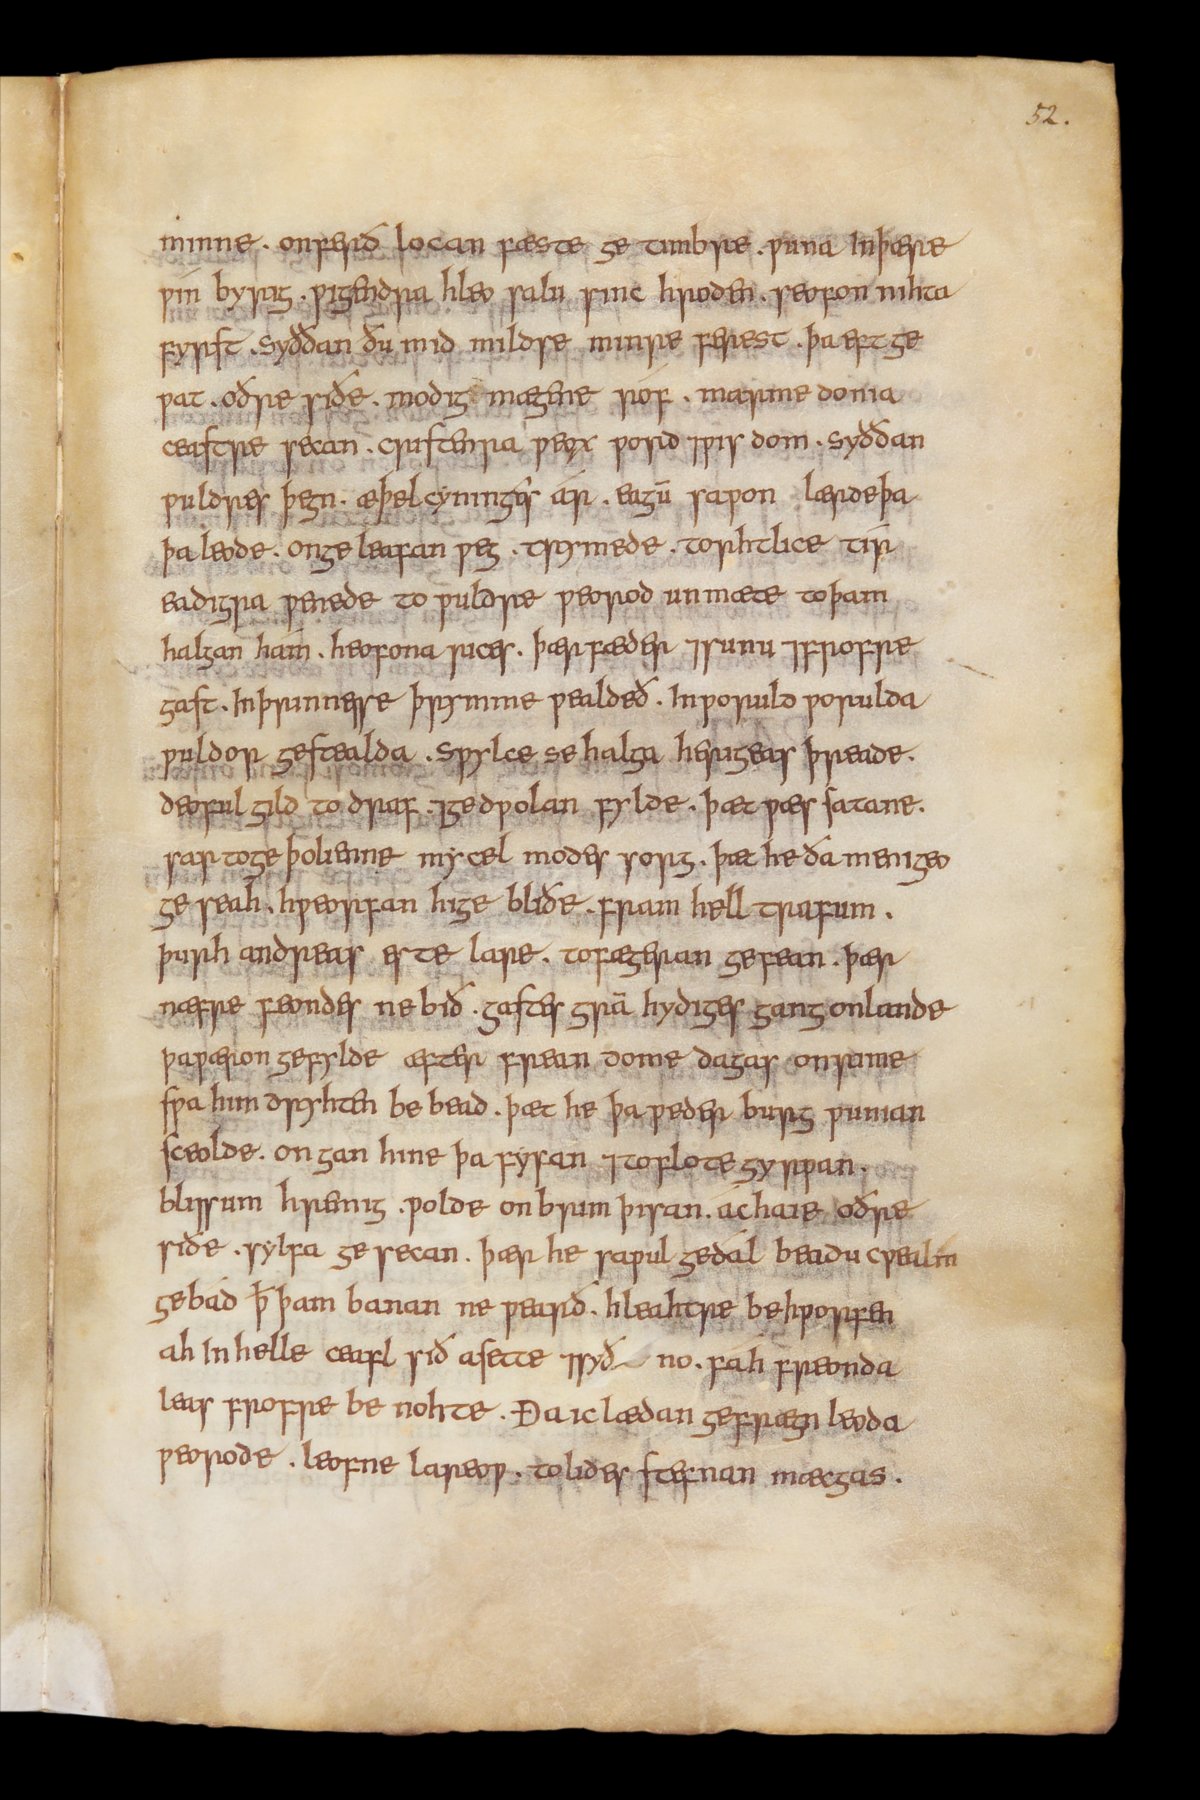 52.
minne . onferið locan fæste ge timbre . ƿuna inþære
ƿin byrig . ƿigendra hleo salu sinc hroden . seofon nihta
fyrst . syððan ðu mid mildse minre ferest . þa eft ge
ƿat . oðre siðe . modig mægene róf . mærmedonia
ceastre secan . cristenra ƿeox ƿord ⁊ƿis dom . syððan
ƿuldres þegn . æþelcyninges ár . eagū saƿon lærdeþa
þa leode . onge leafan ƿeg . trymede . torhtlice tír
eadigra ƿenede to ƿuldre ƿeorod unmæte toþam
halgan hám . heofona rices . þær fæder ⁊sunu ⁊frofre
gast . inþrinnesse þrymme ƿealdeð . inƿoruld ƿorulda
ƿuldor gestealda . sƿylce se halga herigeas þreade .
deoful gild to draf . ⁊gedƿolan fylde . þæt ƿæs satane .
sar toge þolienne mycel modes sorg . þæt he ða menigeo
ge seah . hƿeorfan hige bliðe . fram hell trafum .
þurh andreas este lare . tofægeran gefean . þær
næfre feondes ne bið . gastes grā hydiges gang onlande
þaƿæron gefylde æfter frean dome dagas onrime
sƿa him dryhten be bead . þæt he þa ƿeder burg ƿunian
sceolde . ongan hine þa fýsan ⁊toflote gyrƿan .
blissum hremig . ƿolde on brim þisan . achaie oðre
siðe . sylfa ge secan . þær he saƿul gedál beadu cƿealm
gebád þ̄ þam banan ne ƿearð . hleahtre behƿorfen
ah in helle ceafl sið asette ⁊syð no . fáh freonda
leas frofre be nohte . Ða ic lædan gefrægn leoda
ƿeorode . leofne lareoƿ . tolides stefnan mæcgas .